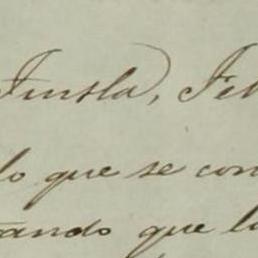 Tuxtla, Fe
lo que se con
ando que la